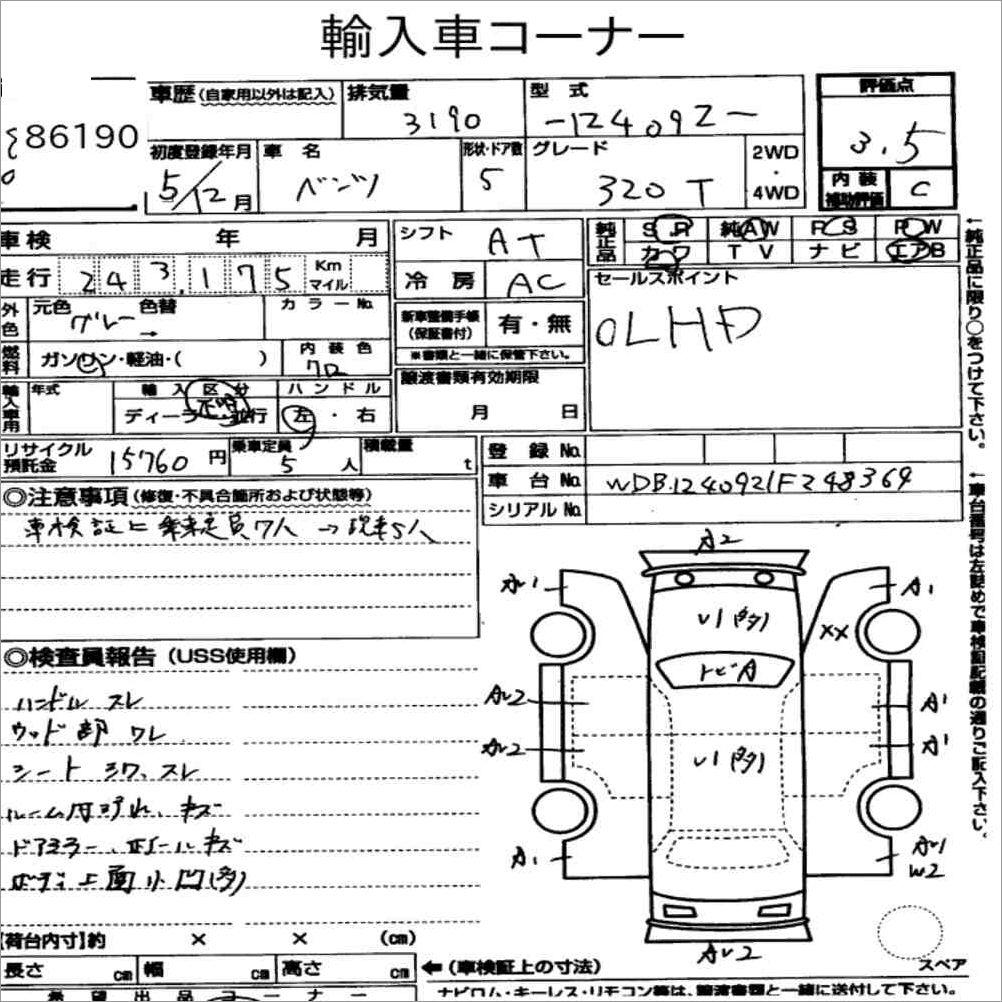 輸入車コーナー
86190
車歴 (自家用以外は記入)
排気量
3190
型式
-124092-
評価点
3.5
初度登録年月
5/12月
車名
ベンツ
形状・ドア数
5
グレード
320T
2WD
・
4WD
内装補助評価
C
車検 年 月
シフト
AT
純正品
SR 純AW PS PW
カワ TV ナビ エアB
走行 243,175 Km マイル
冷房
AC
セールスポイント
○LHD
外色
元色 色替 カラーNo.
グレー →
新車整備手帳(保証書付)
有・無
※書類と一緒に保管下さい。
燃料
ガソリン・軽油・( )
内装色
クロ
譲渡書類有効期限
月 日
輸入車用
年式
輸入区分
ディーラー・並行
不明
ハンドル
左・右
リサイクル預託金
15760円
乗車定員
5人
積載量
t
登録No.
車台No.
WDB1240921F248369
シリアルNo.
◎注意事項(修復・不具合箇所および状態等)
車検証に乗車定員7人→現車5人
◎検査員報告(USS使用欄)
ハンドル スレ
ウッド部 ワレ
シート シワ、スレ
ルーム内 汚れ、キズ
ドアミラー、ホイール キズ
ボディ上面小凹(多)
A2
A1
U1(多)
XX
トビA
A1
A1
U1(多)
A1
W2
スペア
【荷台内寸】約 × × (cm)
長さ cm 幅 cm 高さ cm
←(車検証上の寸法)
希望出品コーナー
ナビロム・キーレス・リモコン等は、譲渡書類と一緒に送付して下さい。
↑純正品に限り○をつけて下さい。
↑車台番号は左詰めで車検証記載の通りご記入下さい。